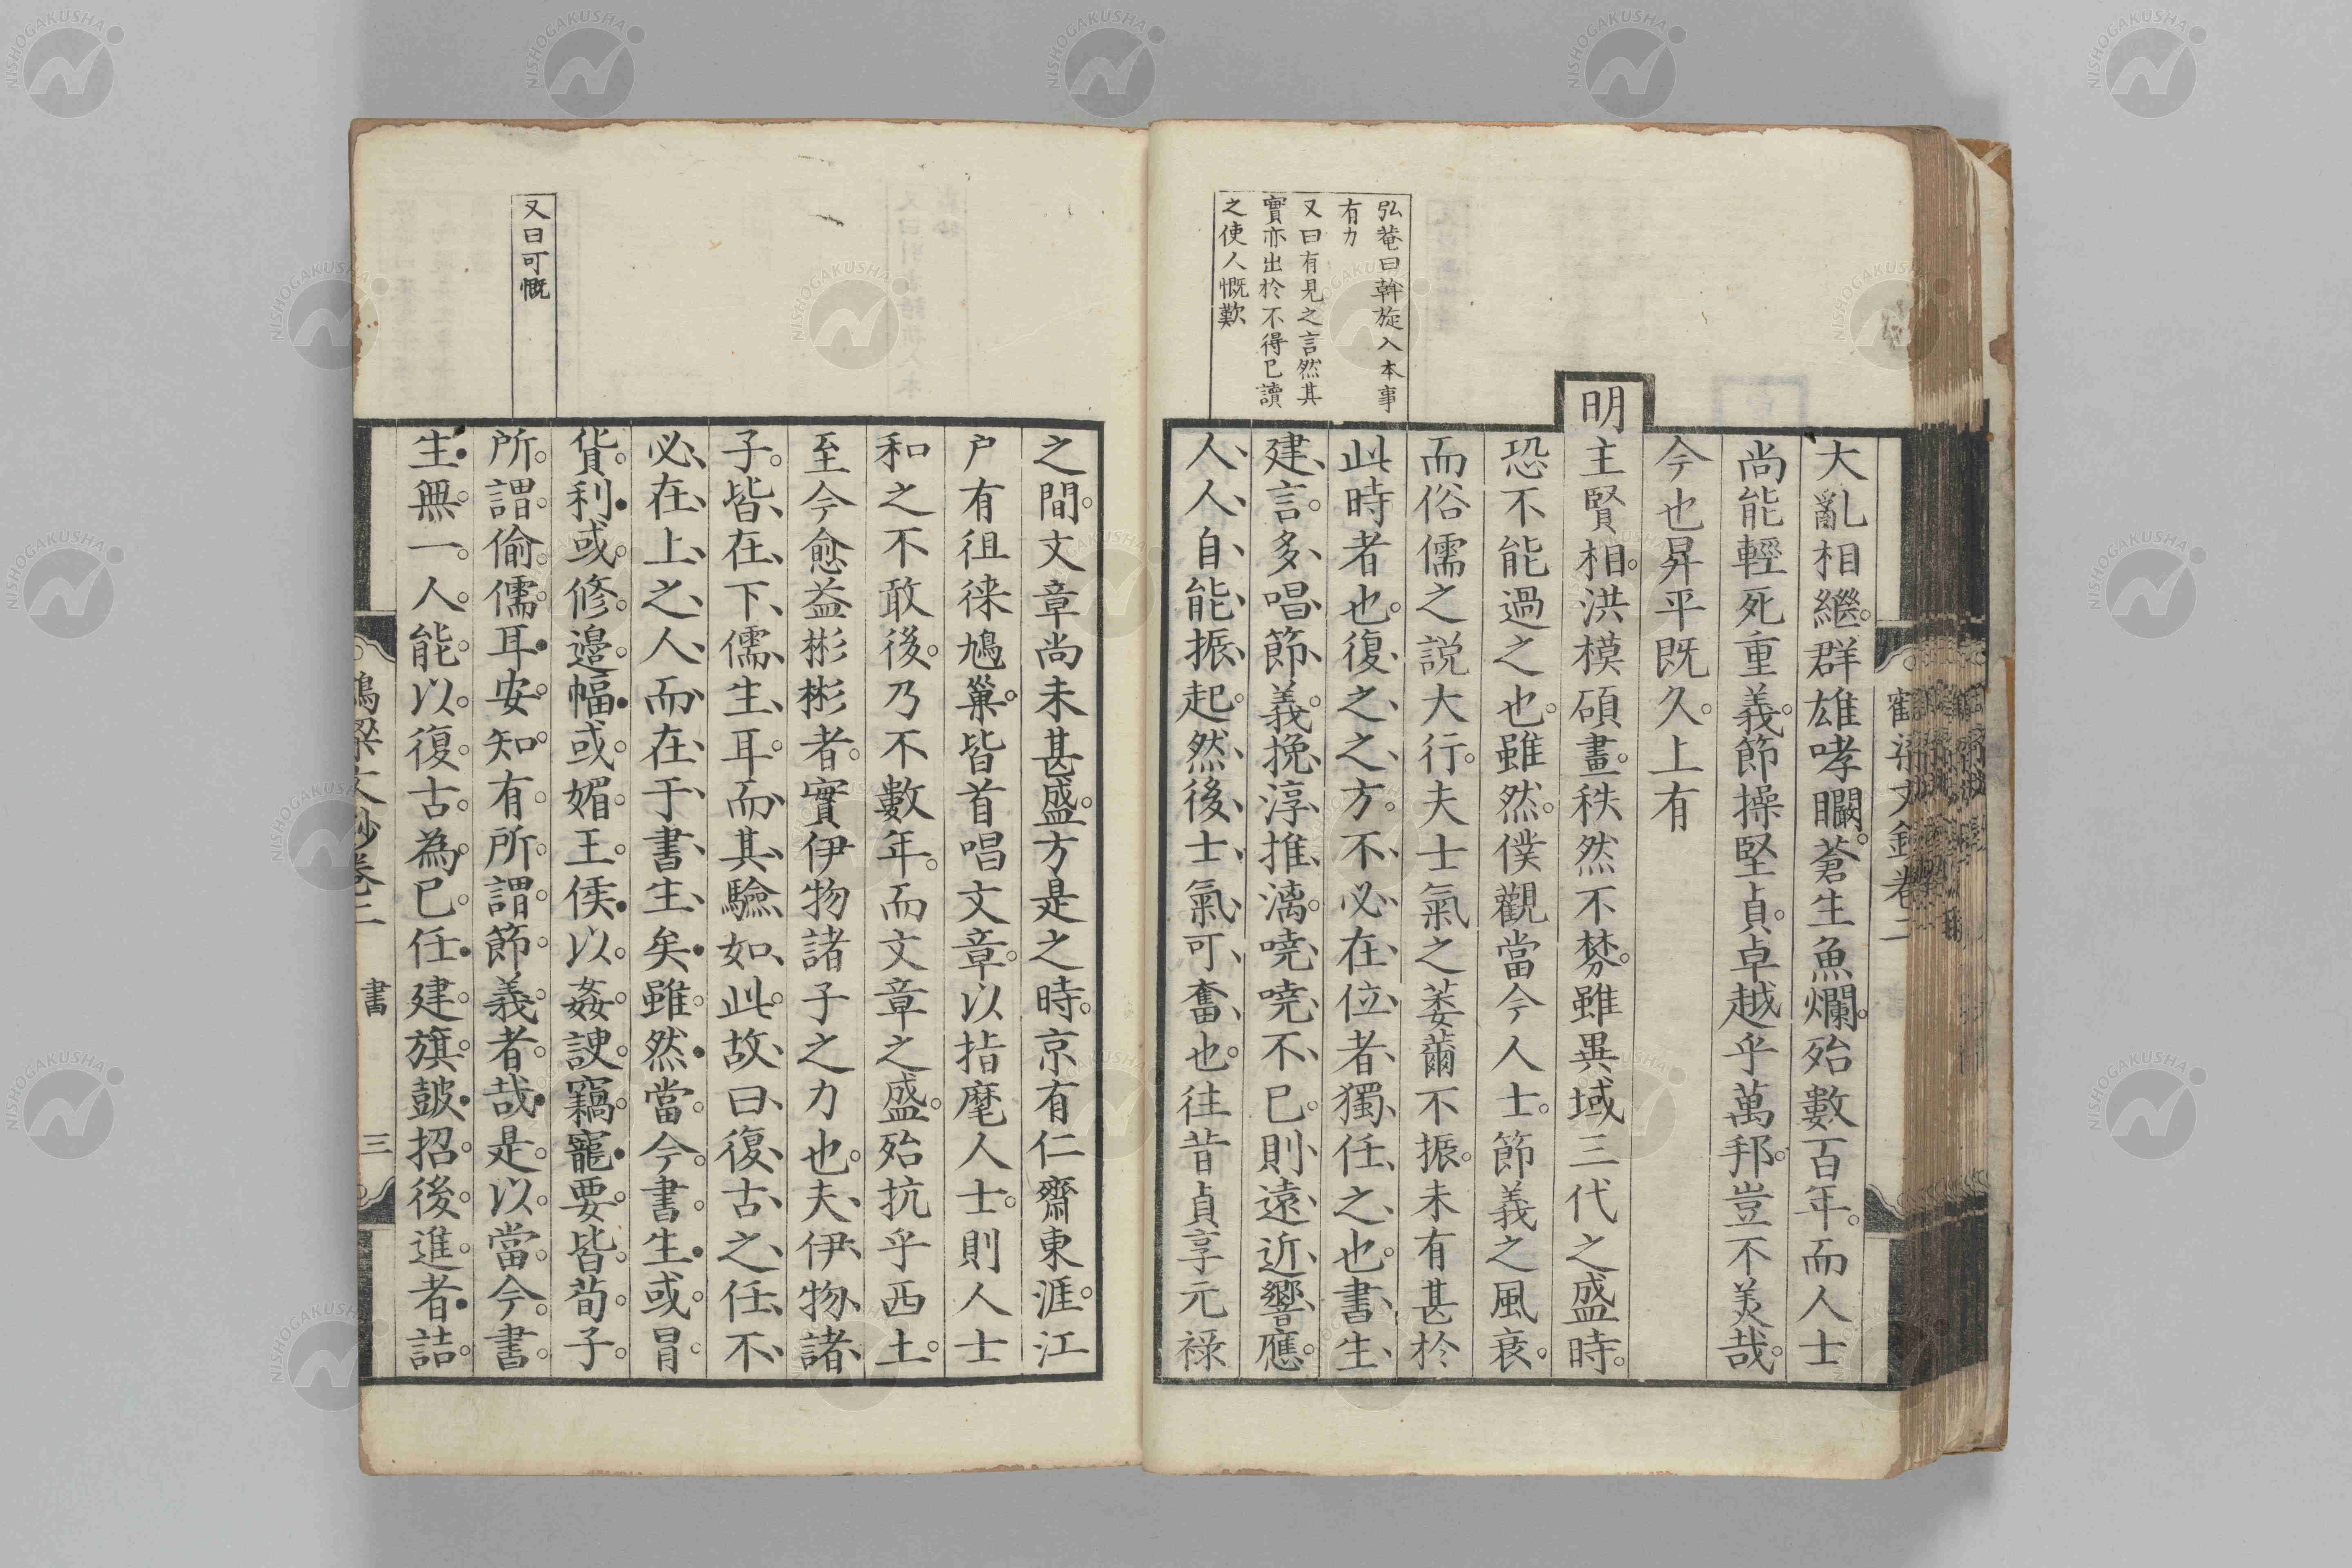 弘菴曰斡旋入本事
有力
又曰有見之言然其
實亦出於不得已讀
之使人慨歎
大亂相繼。群雄哮闞。蒼生魚爛。殆數百年。而人士
尚能輕死重義。節操堅貞。卓越乎萬邦。豈不美哉。
今也昇平既久。上有
明主賢相。洪模碩畫。秩然不棼。雖異域三代之盛時。
恐不能過之也。雖然。僕觀當今人士。節義之風衰。
而俗儒之說大行。夫士氣之萎薾不振。未有甚於
此時者也。復之之方。不必在位者獨任之也。書生
建言。多唱節義。挽淳推漓。嘵嘵不已。則遠近響應。
人人自能振起。然後士氣可奮也。往昔貞享元祿
又曰可慨
之間。文章尚未甚盛。方是之時。京有仁齋東涯。江
戶有徂徠鳩巢。皆首唱文章。以指麾人士。則人士
和之不敢後。乃不數年。而文章之盛。殆抗乎西土。
至今愈益彬彬者。實伊物諸子之力也。夫伊物諸
子。皆在下儒生耳。而其驗如此。故曰復古之任。不
必在上之人。而在于書生矣。雖然當今書生。或冒
貨利。或修邊幅。或媚王侯。以姦諛竊寵要。皆荀子
所謂偷儒耳。安知有所謂節義者哉。是以當今書
生。無一人能以復古為已任。建旗鼓招後進者。詰
鶴梁文鈔卷二 書 三